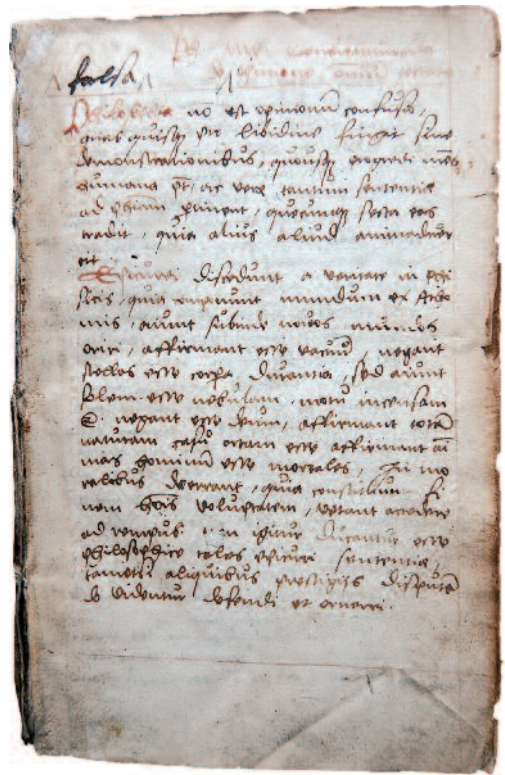 falsa
Philosophia no est opinionum confusio,
quas quisq pro libidine fingit sine
demonstrationibus, quousq progredi mens
humana pt, ac vere tantum sententie
ad phiam ptinent, quecunq secta eas
tradit, quia alius aliud animadver
tit
Epicurei discedunt a veritate in phi
sicis, quia componunt mundum ex Atho
mis, aiunt subinde novos mundos
oriri, affirmant esse vacuum, negant
stellas esse corpora durantia, sed aiunt
solem esse nebulam, motu incensam
negant esse deum, affirmant totam
naturam casu ortam esse affirmant ani
mas hominum esse mortales, In mo
ralibus deerrant, quia constituunt fi
nem hois voluptatem, vetant accedere
ad rempub: non igitur ducantur esse
philosophice tales epicuri sententie,
tametsi aliquibus prestigijs disputan
di videntur defendi et ornari.